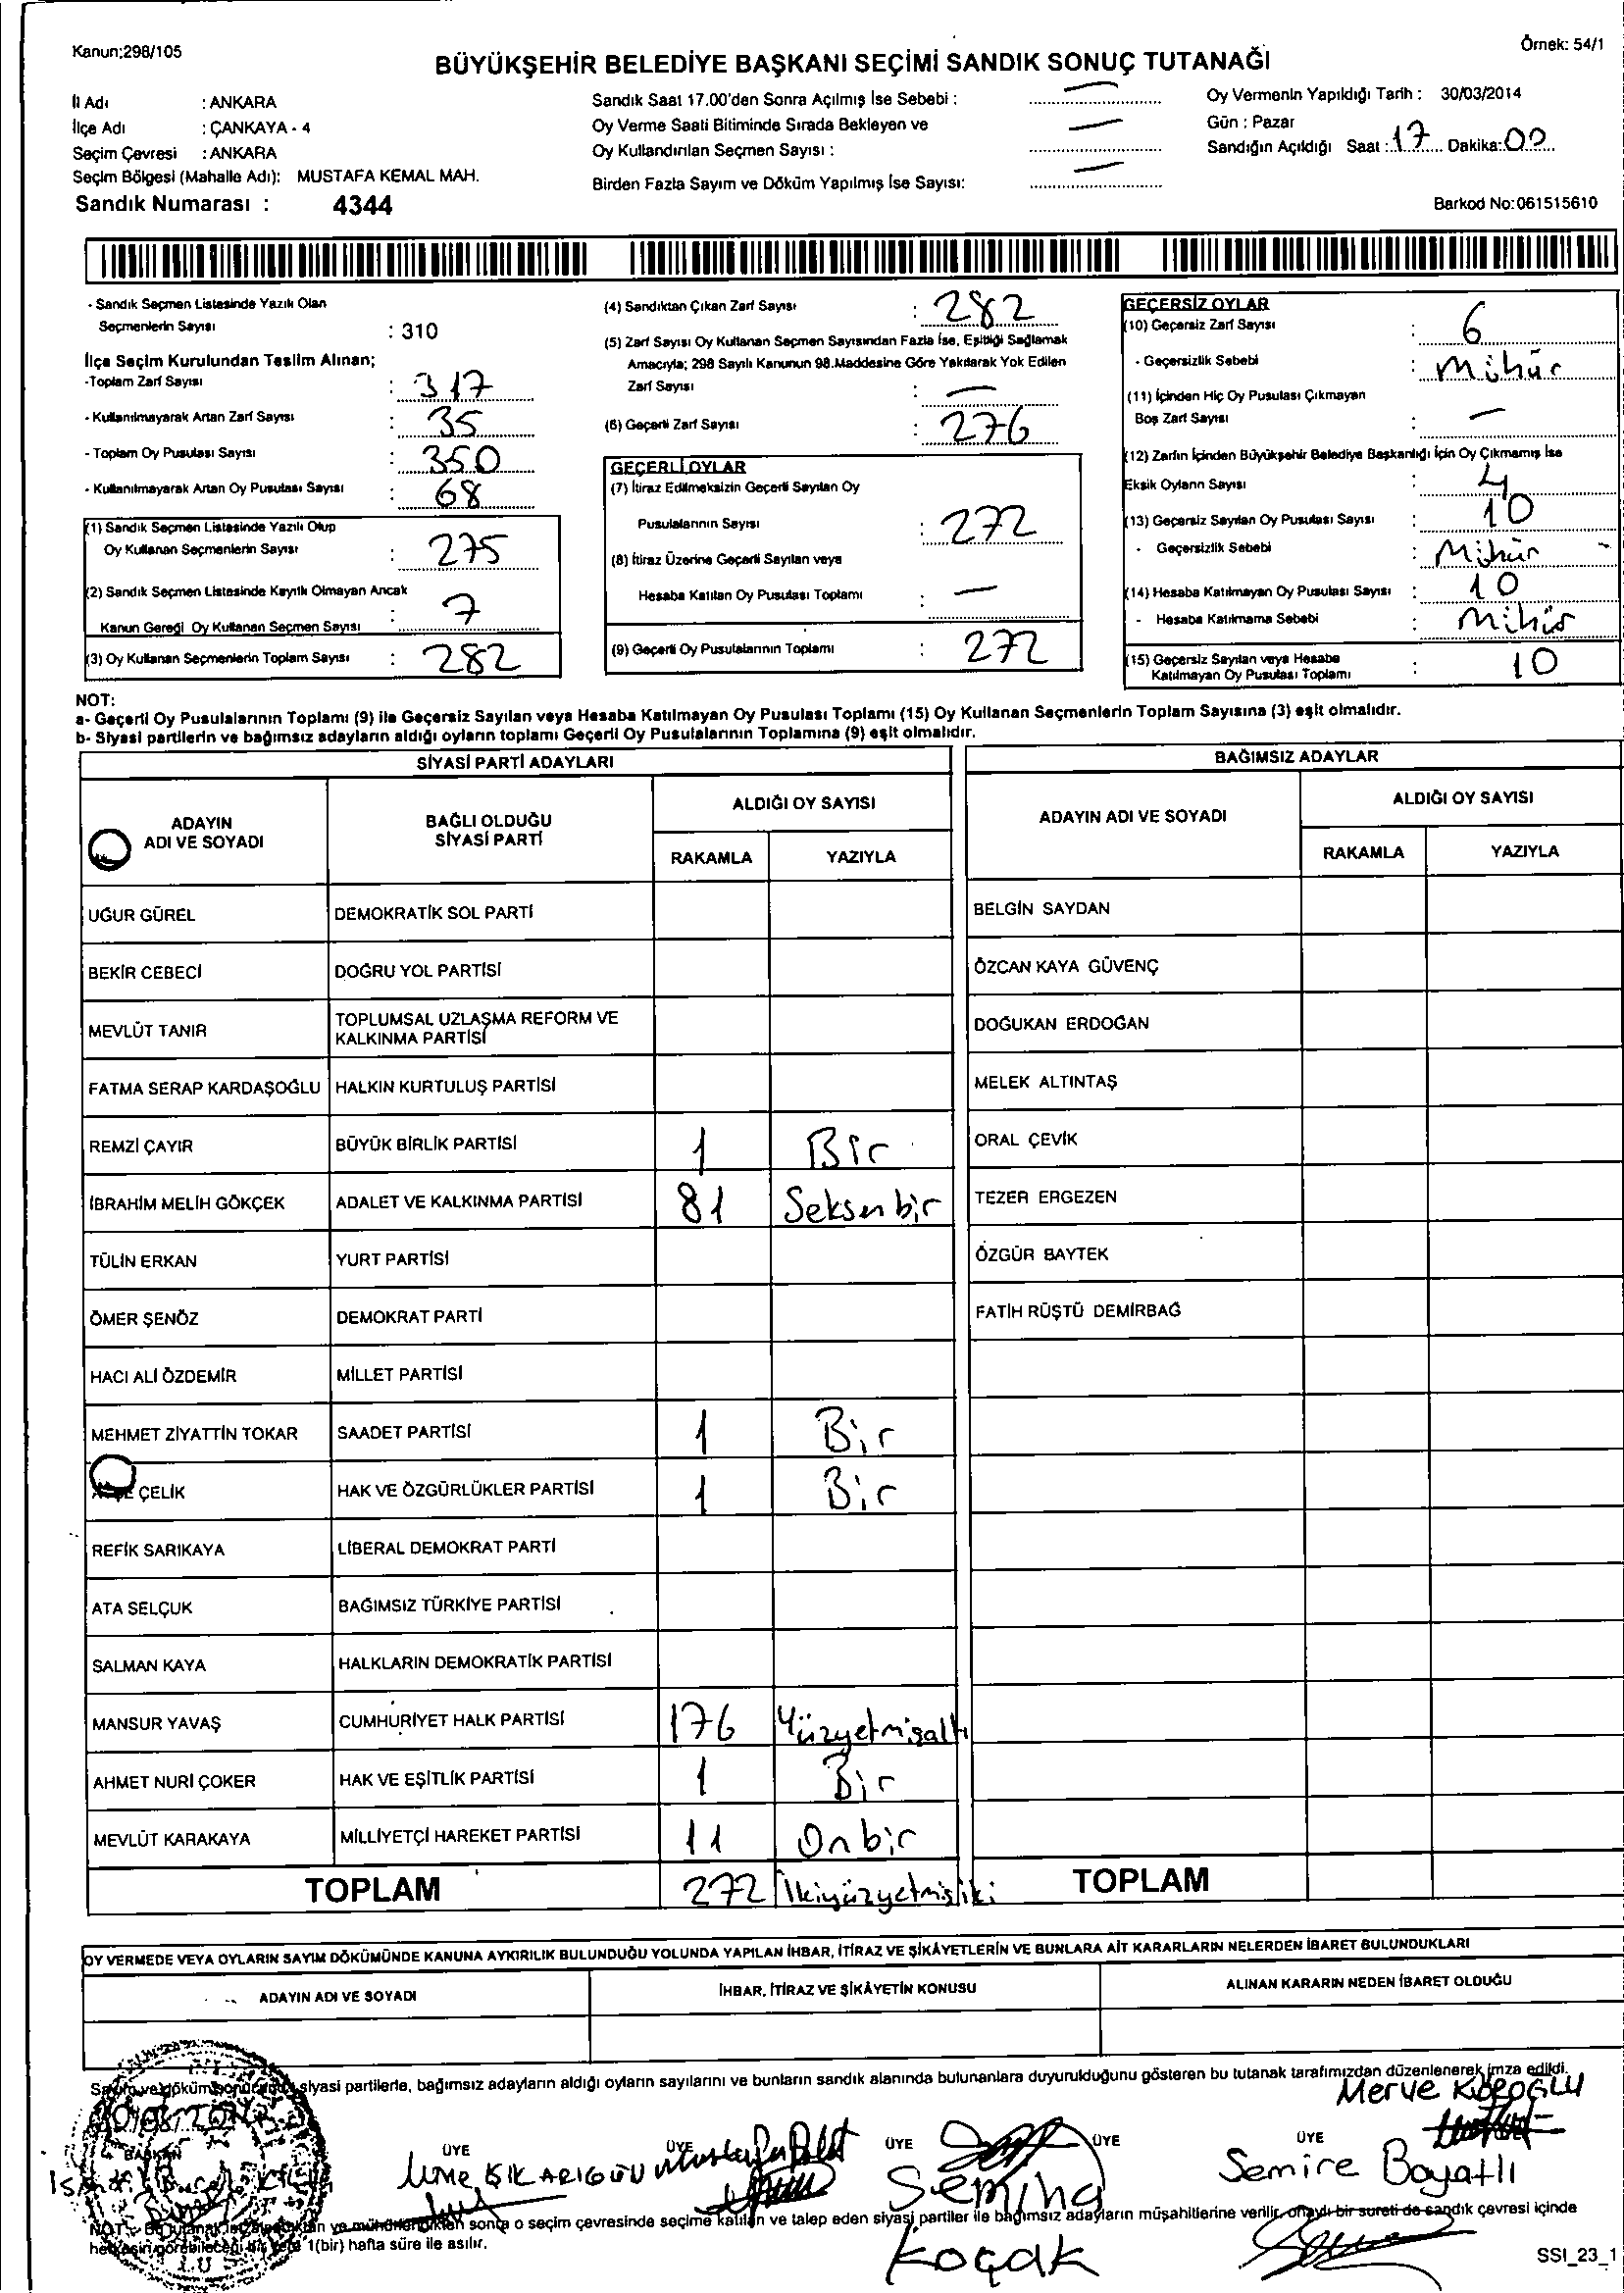 Kanun;298/105
Örnek: 54/1
BÜYÜKŞEHİR BELEDİYE BAŞKANI SEÇİMİ SANDIK SONUÇ TUTANAĞI
İl Adı : ANKARA
İlçe Adı : ÇANKAYA - 4
Seçim Çevresi : ANKARA
Seçim Bölgesi (Mahalle Adı): MUSTAFA KEMAL MAH.
Sandık Numarası : 4344
Sandık Saat 17.00'den Sonra Açılmış İse Sebebi : —
Oy Verme Saati Bitiminde Sırada Bekleyen ve
Oy Kullandırılan Seçmen Sayısı : —
Birden Fazla Sayım ve Döküm Yapılmış İse Sayısı: —
Oy Vermenin Yapıldığı Tarih : 30/03/2014
Gün : Pazar
Sandığın Açıldığı Saat : 17 Dakika: 00
Barkod No:061515610
- Sandık Seçmen Listesinde Yazılı Olan
Seçmenlerin Sayısı : 310
İlçe Seçim Kurulundan Teslim Alınan;
-Toplam Zarf Sayısı : 317
- Kullanılmayarak Artan Zarf Sayısı : 35
- Toplam Oy Pusulası Sayısı : 350
- Kullanılmayarak Artan Oy Pusulası Sayısı : 68
(1) Sandık Seçmen Listesinde Yazılı Olup
Oy Kullanan Seçmenlerin Sayısı : 275
(2) Sandık Seçmen Listesinde Kayıtlı Olmayan Ancak
Kanun Gereği Oy Kullanan Seçmen Sayısı : 7
(3) Oy Kullanan Seçmenlerin Toplam Sayısı : 282
(4) Sandıktan Çıkan Zarf Sayısı : 282
(5) Zarf Sayısı Oy Kullanan Seçmen Sayısından Fazla İse, Eşitliği Sağlamak
Amacıyla; 298 Sayılı Kanunun 98.Maddesine Göre Yakılarak Yok Edilen
Zarf Sayısı : —
(6) Geçerli Zarf Sayısı : 276
GEÇERLİ OYLAR
(7) İtiraz Edilmeksizin Geçerli Sayılan Oy
Pusulalarının Sayısı : 272
(8) İtiraz Üzerine Geçerli Sayılan veya
Hesaba Katılan Oy Pusulası Toplamı : —
(9) Geçerli Oy Pusulalarının Toplamı : 272
GEÇERSİZ OYLAR
(10) Geçersiz Zarf Sayısı : 6
- Geçersizlik Sebebi : Mühür
(11) İçinden Hiç Oy Pusulası Çıkmayan
Boş Zarf Sayısı : —
(12) Zarfın İçinden Büyükşehir Belediye Başkanlığı İçin Oy Çıkmamış İse
Eksik Oyların Sayısı : 4
(13) Geçersiz Sayılan Oy Pusulası Sayısı : 10
- Geçersizlik Sebebi : Mühür
(14) Hesaba Katılmayan Oy Pusulası Sayısı : 10
- Hesaba Katılmama Sebebi : Mühür
(15) Geçersiz Sayılan veya Hesaba
Katılmayan Oy Pusulası Toplamı : 10
NOT:
a- Geçerli Oy Pusulalarının Toplamı (9) ile Geçersiz Sayılan veya Hesaba Katılmayan Oy Pusulası Toplamı (15) Oy Kullanan Seçmenlerin Toplam Sayısına (3) eşit olmalıdır.
b- Siyasi partilerin ve bağımsız adayların aldığı oyların toplamı Geçerli Oy Pusulalarının Toplamına (9) eşit olmalıdır.
SİYASİ PARTİ ADAYLARI
ADAYIN
ADI VE SOYADI
BAĞLI OLDUĞU
SİYASİ PARTİ
ALDIĞI OY SAYISI
RAKAMLA YAZIYLA
UĞUR GÜREL DEMOKRATİK SOL PARTİ
BEKİR CEBECİ DOĞRU YOL PARTİSİ
MEVLÜT TANIR TOPLUMSAL UZLAŞMA REFORM VE
KALKINMA PARTİSİ
FATMA SERAP KARDAŞOĞLU HALKIN KURTULUŞ PARTİSİ
REMZİ ÇAYIR BÜYÜK BİRLİK PARTİSİ 1 Bir
İBRAHİM MELİH GÖKÇEK ADALET VE KALKINMA PARTİSİ 81 Seksenbir
TÜLİN ERKAN YURT PARTİSİ
ÖMER ŞENÖZ DEMOKRAT PARTİ
HACI ALİ ÖZDEMİR MİLLET PARTİSİ
MEHMET ZİYATTİN TOKAR SAADET PARTİSİ 1 Bir
ÇELİK HAK VE ÖZGÜRLÜKLER PARTİSİ 1 Bir
REFİK SARIKAYA LİBERAL DEMOKRAT PARTİ
ATA SELÇUK BAĞIMSIZ TÜRKİYE PARTİSİ
SALMAN KAYA HALKLARIN DEMOKRATİK PARTİSİ
MANSUR YAVAŞ CUMHURİYET HALK PARTİSİ 176 Yüzyetmişaltı
AHMET NURİ ÇOKER HAK VE EŞİTLİK PARTİSİ 1 Bir
MEVLÜT KARAKAYA MİLLİYETÇİ HAREKET PARTİSİ 11 Onbir
TOPLAM 272 İkiyüzyetmişiki
BAĞIMSIZ ADAYLAR
ADAYIN ADI VE SOYADI
ALDIĞI OY SAYISI
RAKAMLA YAZIYLA
BELGİN SAYDAN
ÖZCAN KAYA GÜVENÇ
DOĞUKAN ERDOĞAN
MELEK ALTINTAŞ
ORAL ÇEVİK
TEZER ERGEZEN
ÖZGÜR BAYTEK
FATİH RÜŞTÜ DEMİRBAĞ
TOPLAM
OY VERMEDE VEYA OYLARIN SAYIM DÖKÜMÜNDE KANUNA AYKIRILIK BULUNDUĞU YOLUNDA YAPILAN İHBAR, İTİRAZ VE ŞİKÂYETLERİN VE BUNLARA AİT KARARLARIN NELERDEN İBARET BULUNDUKLARI
ADAYIN ADI VE SOYADI
İHBAR, İTİRAZ VE ŞİKÂYETİN KONUSU
ALINAN KARARIN NEDEN İBARET OLDUĞU
siyasi partilerle, bağımsız adayların aldığı oyların sayılarını ve bunların sandık alanında bulunanlara duyurulduğunu gösteren bu tutanak tarafımızdan düzenlenerek imza edildi.
Merve KÖROĞLU
BAŞKAN ÜYE ÜYE ÜYE ÜYE ÜYE
Semiha
Koçak
Semire Boyatlı
sonra o seçim çevresinde seçime katılan ve talep eden siyasi partiler ile bağımsız adayların müşahitlerine verilir, onaylı bir sureti de sandık çevresi içinde
1(bir) hafta süre ile asılır.
SSI_23_1